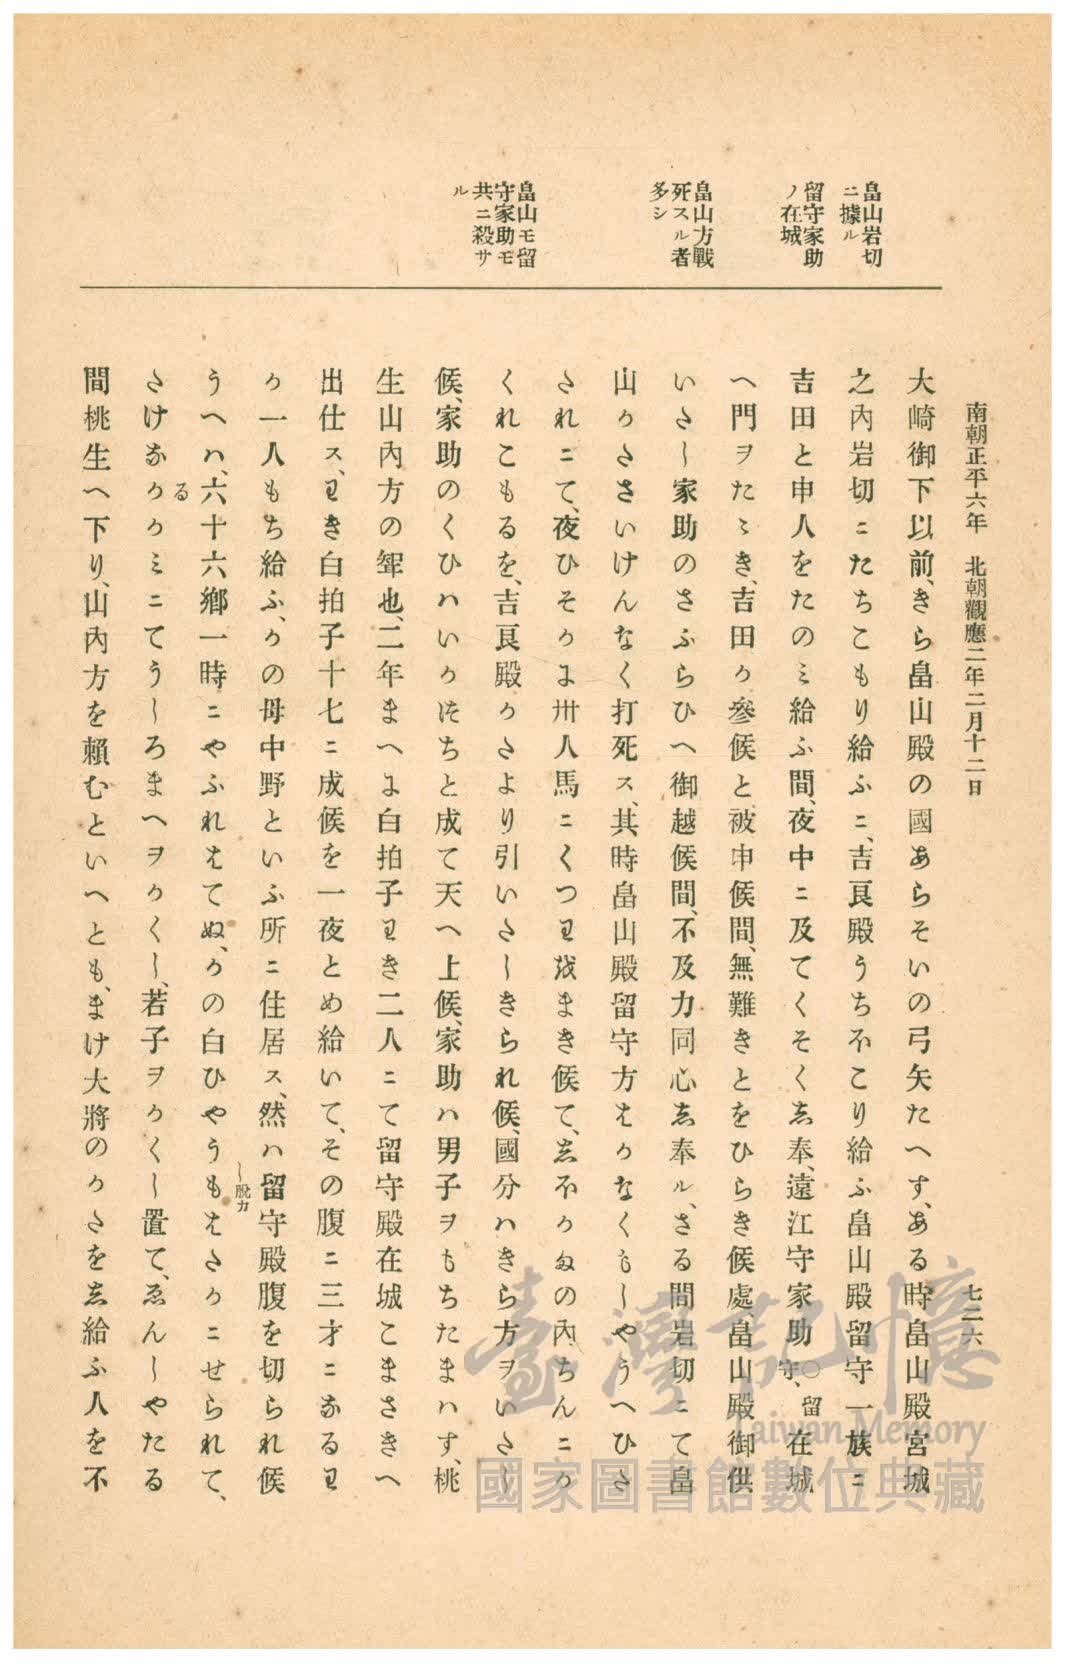 南朝正平六年　北朝觀應二年二月十二日
七二六
畠山岩切
ニ據ル
留守家助
ノ在城
畠山方戰
死スル者
多シ
畠山モ留
守家助モ
共ニ殺サ
ル
大崎御下以前、きら畠山殿の國あらそいの弓矢たへす、ある時畠山殿宮城
之內岩切ニたちこもり給ふニ、吉良殿うちおこり給ふ畠山殿留守一族ニ
吉田と申人をたのミ給ふ間、夜中ニ及てくそくし奉、遠江守家助〇留守、在城
へ門ヲたゝき、吉田か參候と被申候間、無難きとをひらき候處、畠山殿御供
いたし家助のさふらひへ御越候間、不及力同心し奉ル、さる間岩切ニて畠
山かたさいけんなく打死ス、其時畠山殿留守方はかなくもしやうへひさ
されニて、夜ひそかに卅人馬ニくつわはまき候て、しおかまの內ちんニか
くれこもるを、吉良殿かたより引いたしきられ候、國分ハきら方ヲいたし
候、家助のくひハいかつちと成て天へ上候、家助ハ男子ヲもちたまハす、桃
生山內方の聟也、二年まへに白拍子わき二人ニて留守殿在城こまさきへ
出仕ス、わき白拍子十七ニ成候を一夜とめ給いて、その腹ニ三才ニなるわ
か一人もち給ふ、かの母中野といふ所ニ住居ス、然ハ留守殿腹を切られ候
うへハ、六十六鄉一時ニやふれはてぬ、かの白ひやうもはたかニせられて、
〳脫カ
さけなかゝミニてうしろまへヲかくし、若子ヲかくし置て、ゑんしやたる
る
間桃生へ下り、山內方を賴むといへとも、まけ大將のかたをし給ふ人を不
臺灣記憶
Taiwan Memory
國家圖書館數位典藏